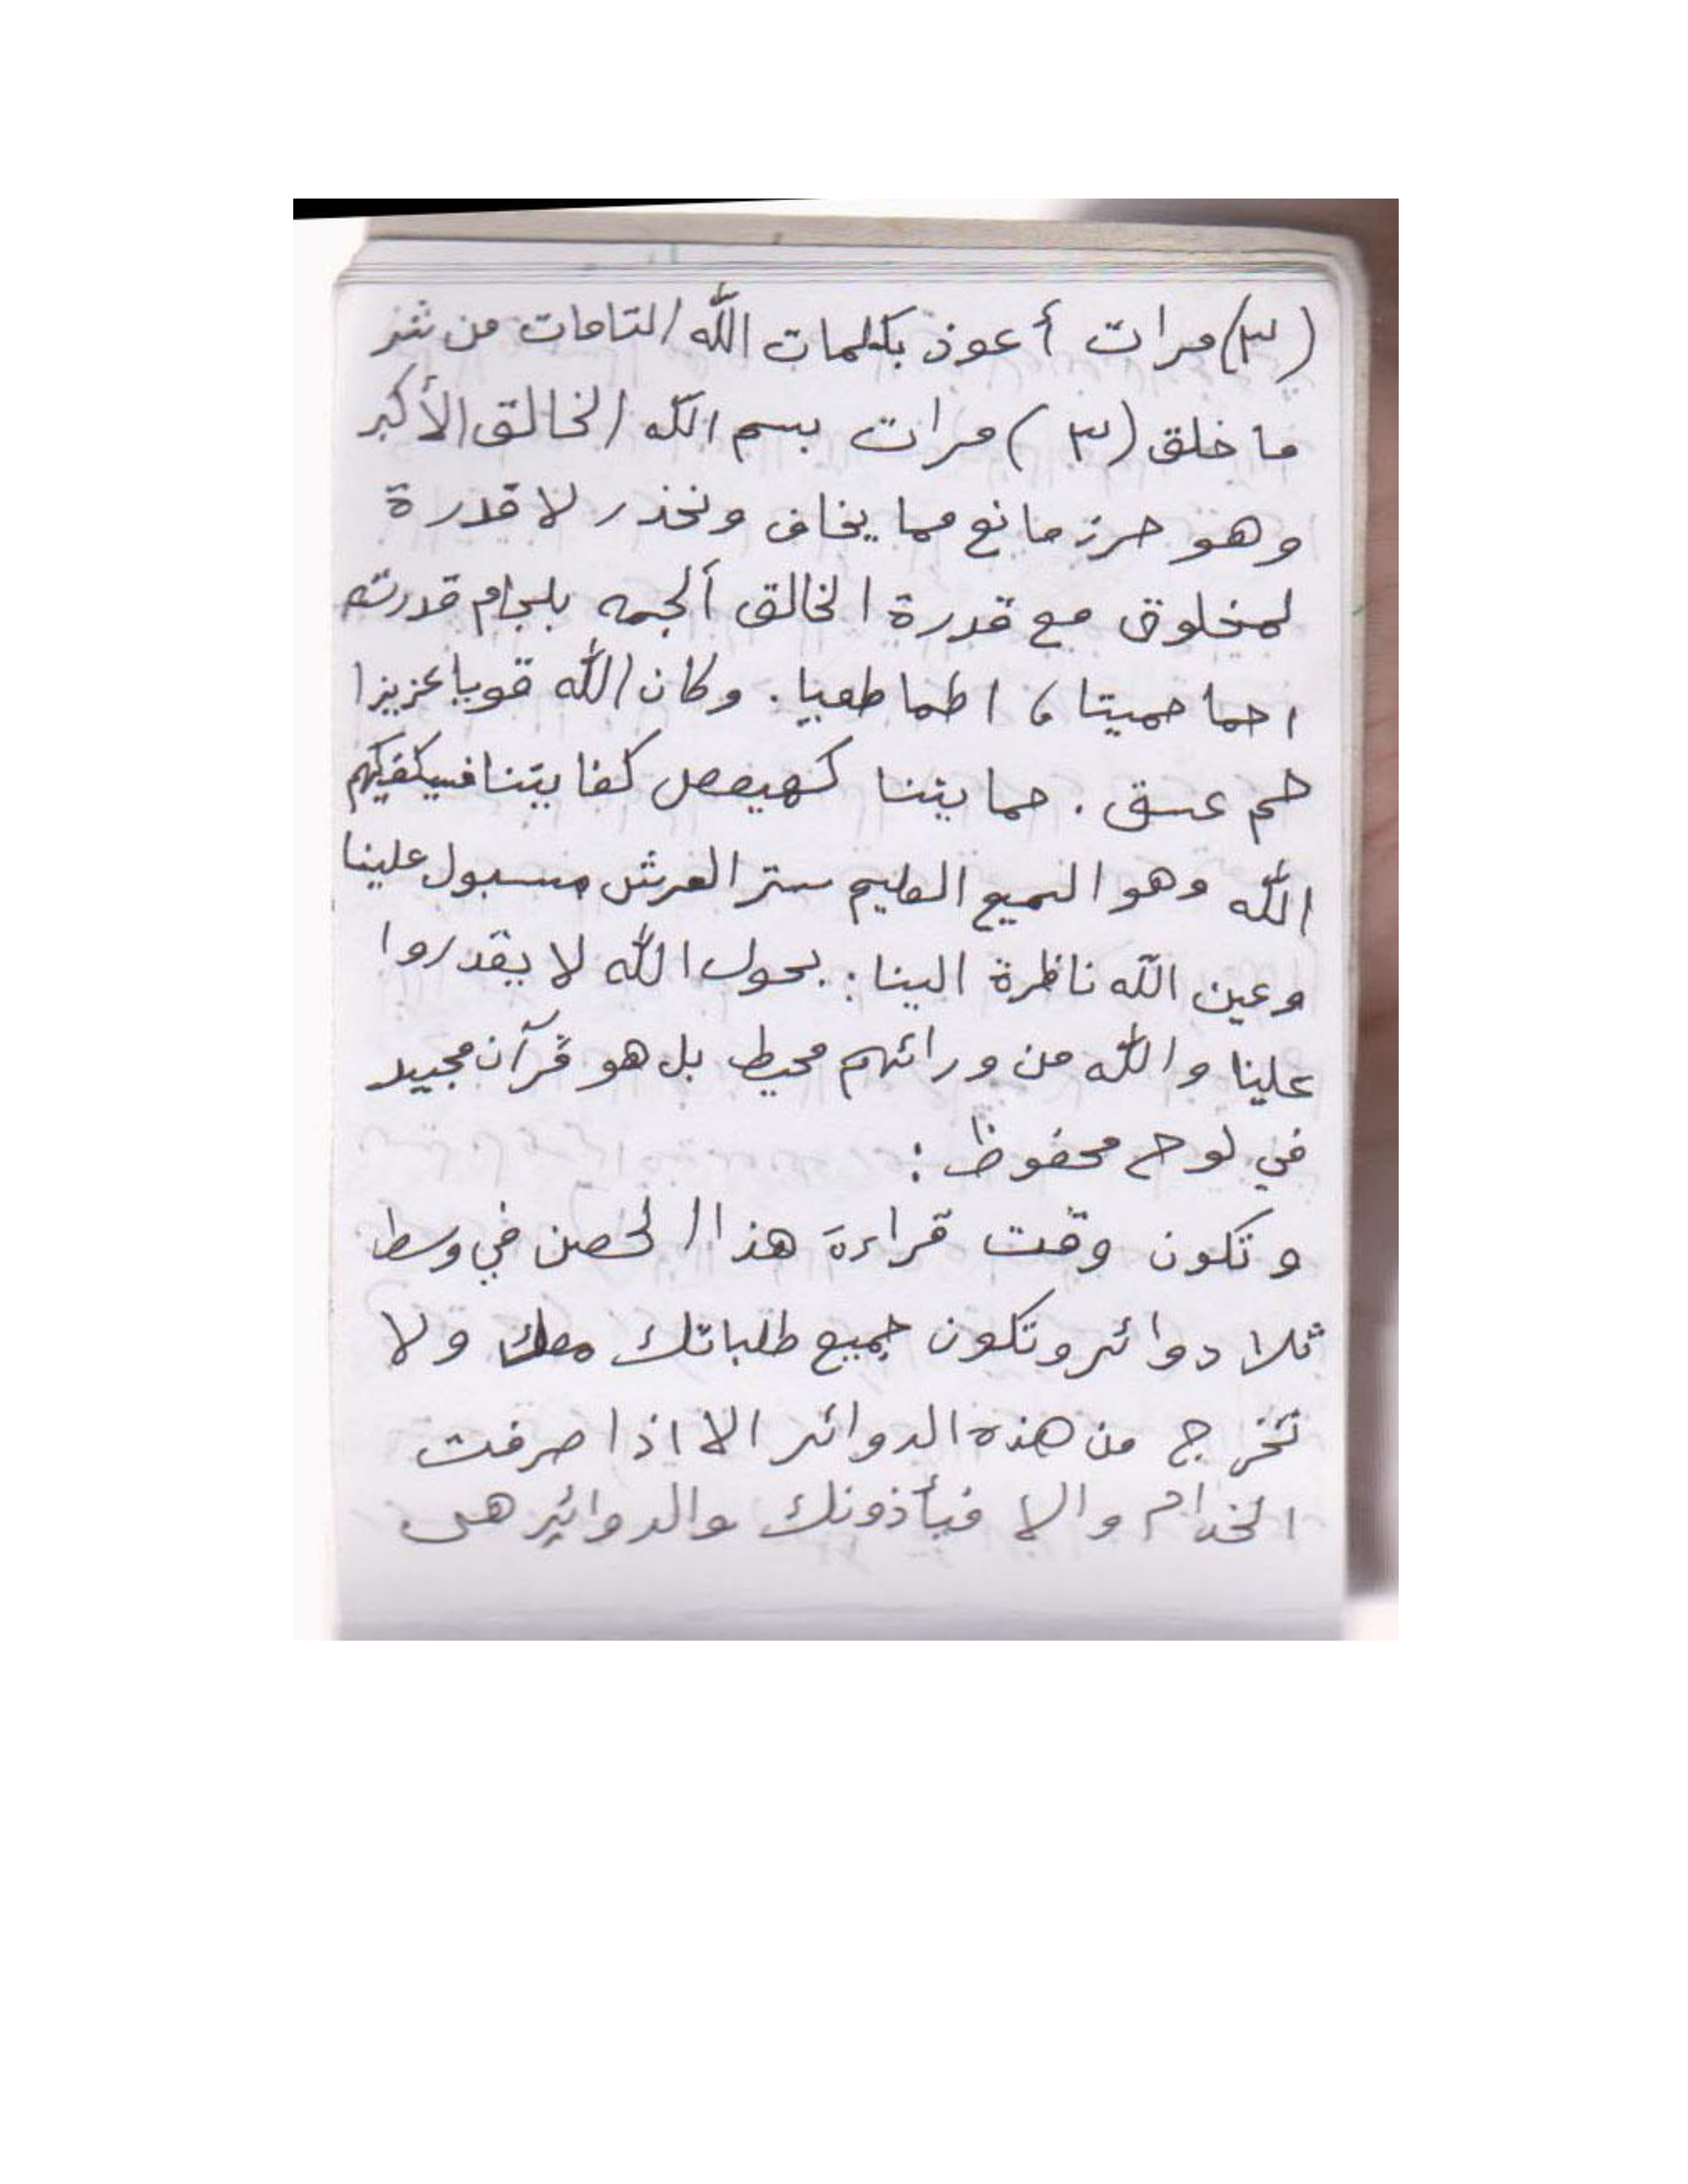 (٣) مرات أعوذ بكلمات الله التامات من شر
ما خلق (٣) مرات بسم الله الخالق الأكبر
وهو حرز مانع مما يخاف ونحذر لا قدرة
لمخلوق مع قدرة الخالق ألجمه بلجام قدرته
احما حميتا، اطما طميا. وكان الله قويا عزيزا
حم عسق. حمايتنا كهيعص كفايتنا فسيكفيكهم
الله وهو السميع العليم ستر العرش مسبول علينا
وعين الله ناظرة الينا: بحول الله لا يقدروا
علينا والله من ورائهم محيط بل هو قرآن مجيد
في لوح محفوظ:
وتكون وقت قراءة هذا الحصن في وسط
ثلا دوائر وتكون جميع طلباتك معك ولا
تخرج من هذه الدوائر الا اذا صرفت
الخدام والا فيأذونك والدوائر هى